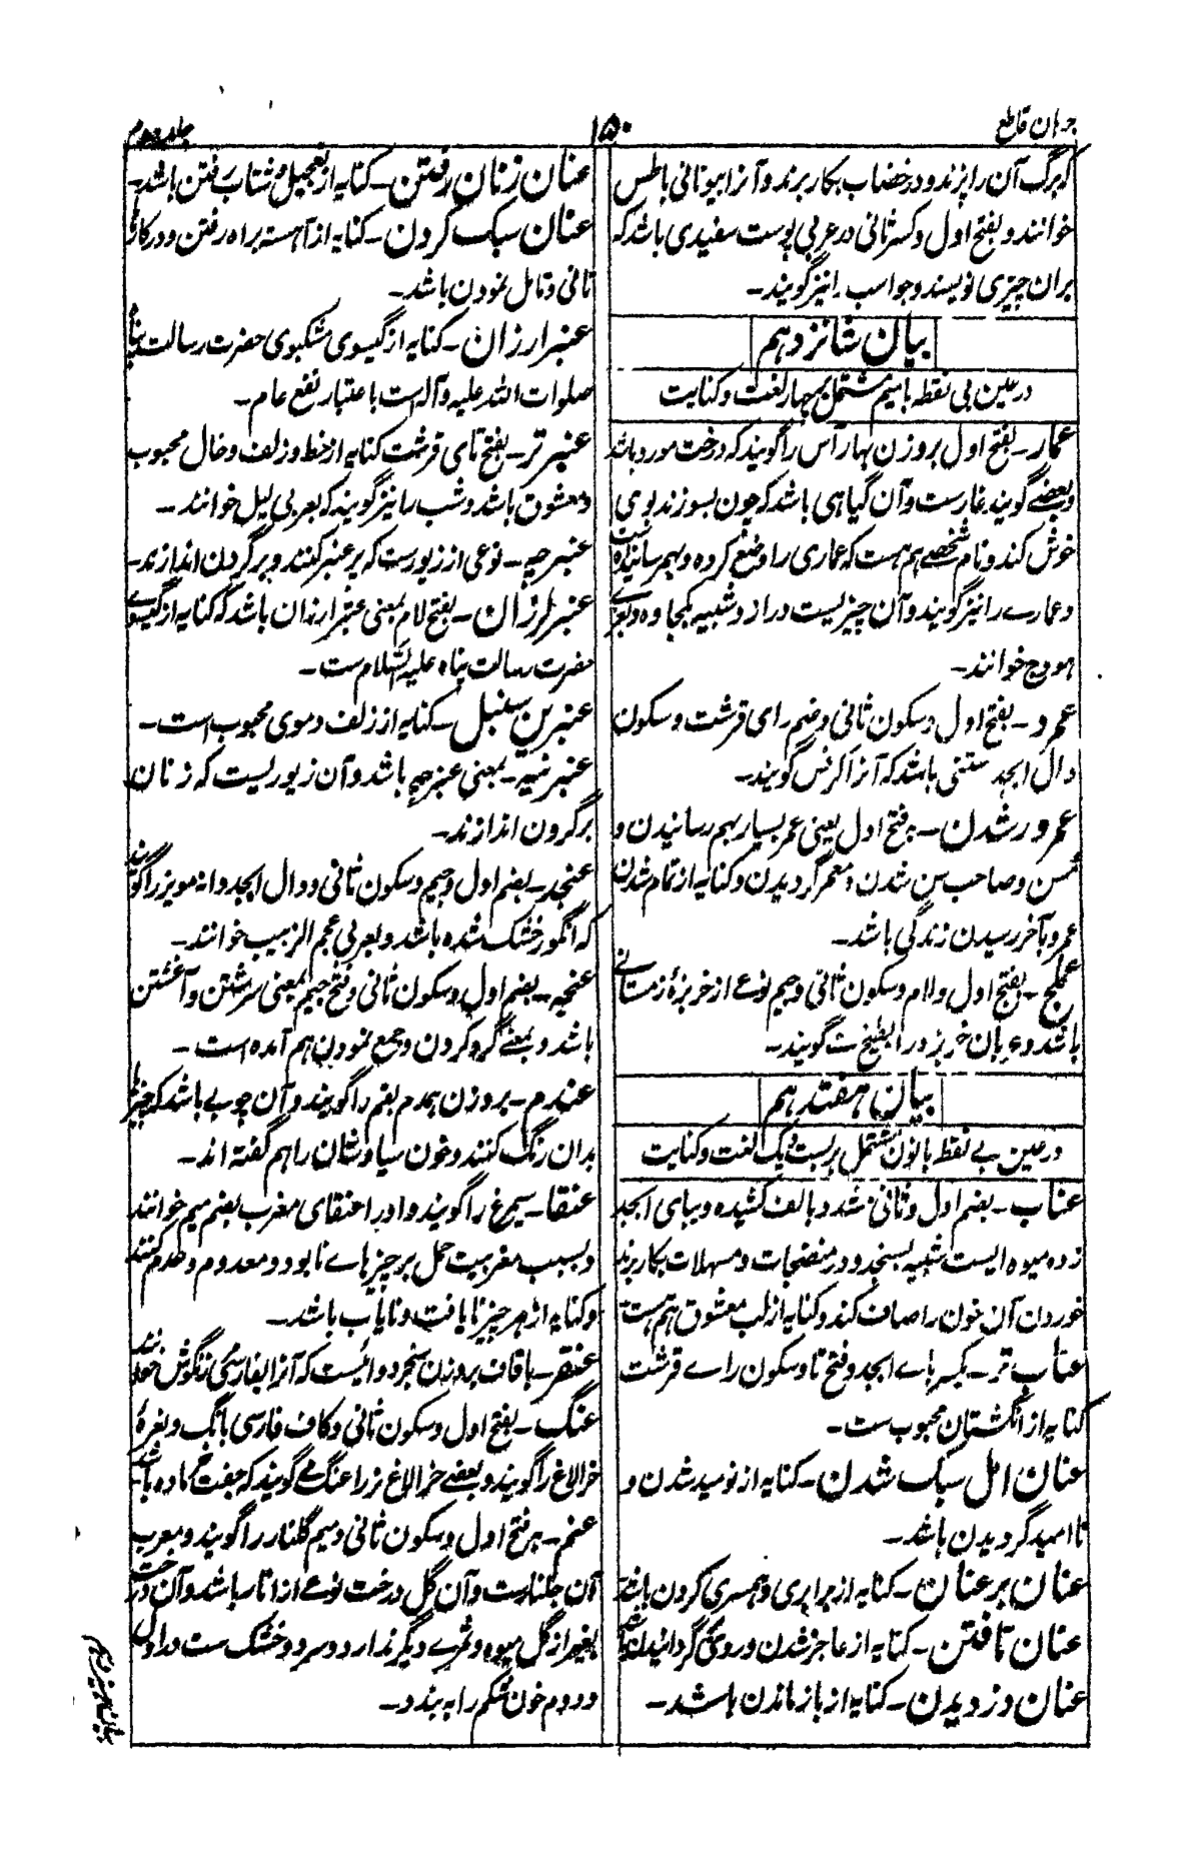 برهان قاطع
۱۵۰
جلد دوم
که برگ آن را پزند و در خضاب بکار برند و آنرا بیونانی باطس
خوانند و بفتح اول و کسر ثانی در عربی پوست سفیدی باشد که
بران چیزی نویسند و جواسب را نیز گویند۔
بیان شانزدهم
در عین بی نقطه با میم مشتمل بر چهار لغت و کنایت
عمار۔ بفتح اول بروزن بهار آس را گویند که درخت مورد باشد
و بعضے گویند غارست و آن گیاهی باشد که چون بسوزند بوی
خوش کند و نام شخصے هم هست که عماری را وضع کرده و بهم رسانیده
و عمارے را نیز گویند و آن چیزیست دراز و شبیه بکجاوه و بعربے
هودج خوانند۔
عمرد۔ بفتح اول و سکون ثانی و ضم رای قرشت و سکون
دال ابجد رستنی باشد که آنرا کرفس گویند۔
عمر در شدن۔ بفتح اول یعنی عمر بسیار بهم رسانیدن و
مسن و صاحب سن شدن و معمر گردیدن و کنایه از تمام شدن
عمر و بآخر رسیدن زندگی باشد۔
عملج۔ بفتح اول و لام و سکون ثانی و جیم نوعے از خربزهٔ زمستانے
باشد و عربان خربزه را بطیخ گویند۔
بیان هفتدهم
در عین بے نقطه با نون مشتمل بر بست و یک لغت و کنایت
عناب۔ بضم اول و ثانی مشدد بالف کشیده و ببای ابجد
زده میوه ایست شبیه بسنجد و در منضجات و مسهلات بکار برند
خوردن آن خون را صاف کند و کنایه از لب معشوق هم هست
عناب تر۔ بکسر باے ابجد و فتح تا و سکون راے قرشت
کنایه از انگشتان محبوب ست۔
عنان امل سبک شدن۔ کنایه از نومید شدن و
ناامید گردیدن باشد۔
عنان بر عنان۔ کنایه از برابری و همسری کردن باشد
عنان تافتن۔ کنایه از عاجز شدن و روی گردانیدن باشد
عنان دزدیدن۔ کنایه از باز ماندن باشد۔
عنان زنان رفتن۔ کنایه از تعجیل و شتاب رفتن باشد۔
عنان سبک کردن۔ کنایه از آهسته براه رفتن و در کارها
تانی و تامل نمودن باشد۔
عنبر ارزان۔ کنایه از گیسوی مشکبوی حضرت رسالت پناه
صلوات الله علیه و آله است باعتبار نفع عام۔
عنبر تر۔ بفتح تای قرشت کنایه از خط و زلف و خال محبوب
و معشوق باشد و شب را نیز گویند که بعربی لیل خوانند۔
عنبرچه۔ نوعی از زیورست که پر عنبر کنند و بر گردن اندازند۔
عنبر لرزان۔ بفتح لام بمعنی عنبر ارزان باشد که کنایه از گیسوے
حضرت رسالت پناه علیه السلام ست۔
عنبرین سنبل۔ کنایه از زلف و موی محبوب است۔
عنبرینه۔ بمعنی عنبرچه باشد و آن زیوریست که زنان
بر گردن اندازند۔
عنجد۔ بضم اول و جیم و سکون ثانی و دال ابجد دانه مویز را گویند
که انگور خشک شده باشد و بعربی عجم الزبیب خوانند۔
عنجیه۔ بضم اول و سکون ثانی و فتح جیم بمعنی سرشتن و آغشتن
باشد و بمعنے گرو کردن و جمع نمودن هم آمده است۔
عندم۔ بروزن همدم بقم را گویند و آن چوبے باشد که چیزها
بدان رنگ کنند و خون سیاوشان را هم گفته اند۔
عنقا۔ سیمرغ را گویند و او را عنقای مغرب بضم میم خوانند
و بسبب مغربیت حمل بر چیزهاے نابود و معدوم و عدم کنند
و کنایه از هر چیز نایافت و نایاب باشد۔
عنقر۔ با قاف بروزن سنجر دوائیست که آنرا بفارسی مرزنگوش خوانند
عنگ۔ بفتح اول و سکون ثانی و کاف فارسی بانگ و نعرهٔ
خر الاغ را گویند و بعضے خر الاغ نر را عنگ مے گویند که جفت ماده باشد
عنم۔ بفتح اول و سکون ثانی و میم گلنار را گویند و معرب
آن جلنارست و آن گل درخت نوعے از انار باشد و آن درخت
بغیر از گل میوه و ثمرے دیگر ندارد و سرد و خشک ست در اول
و دوم خون شکم را به بندد۔